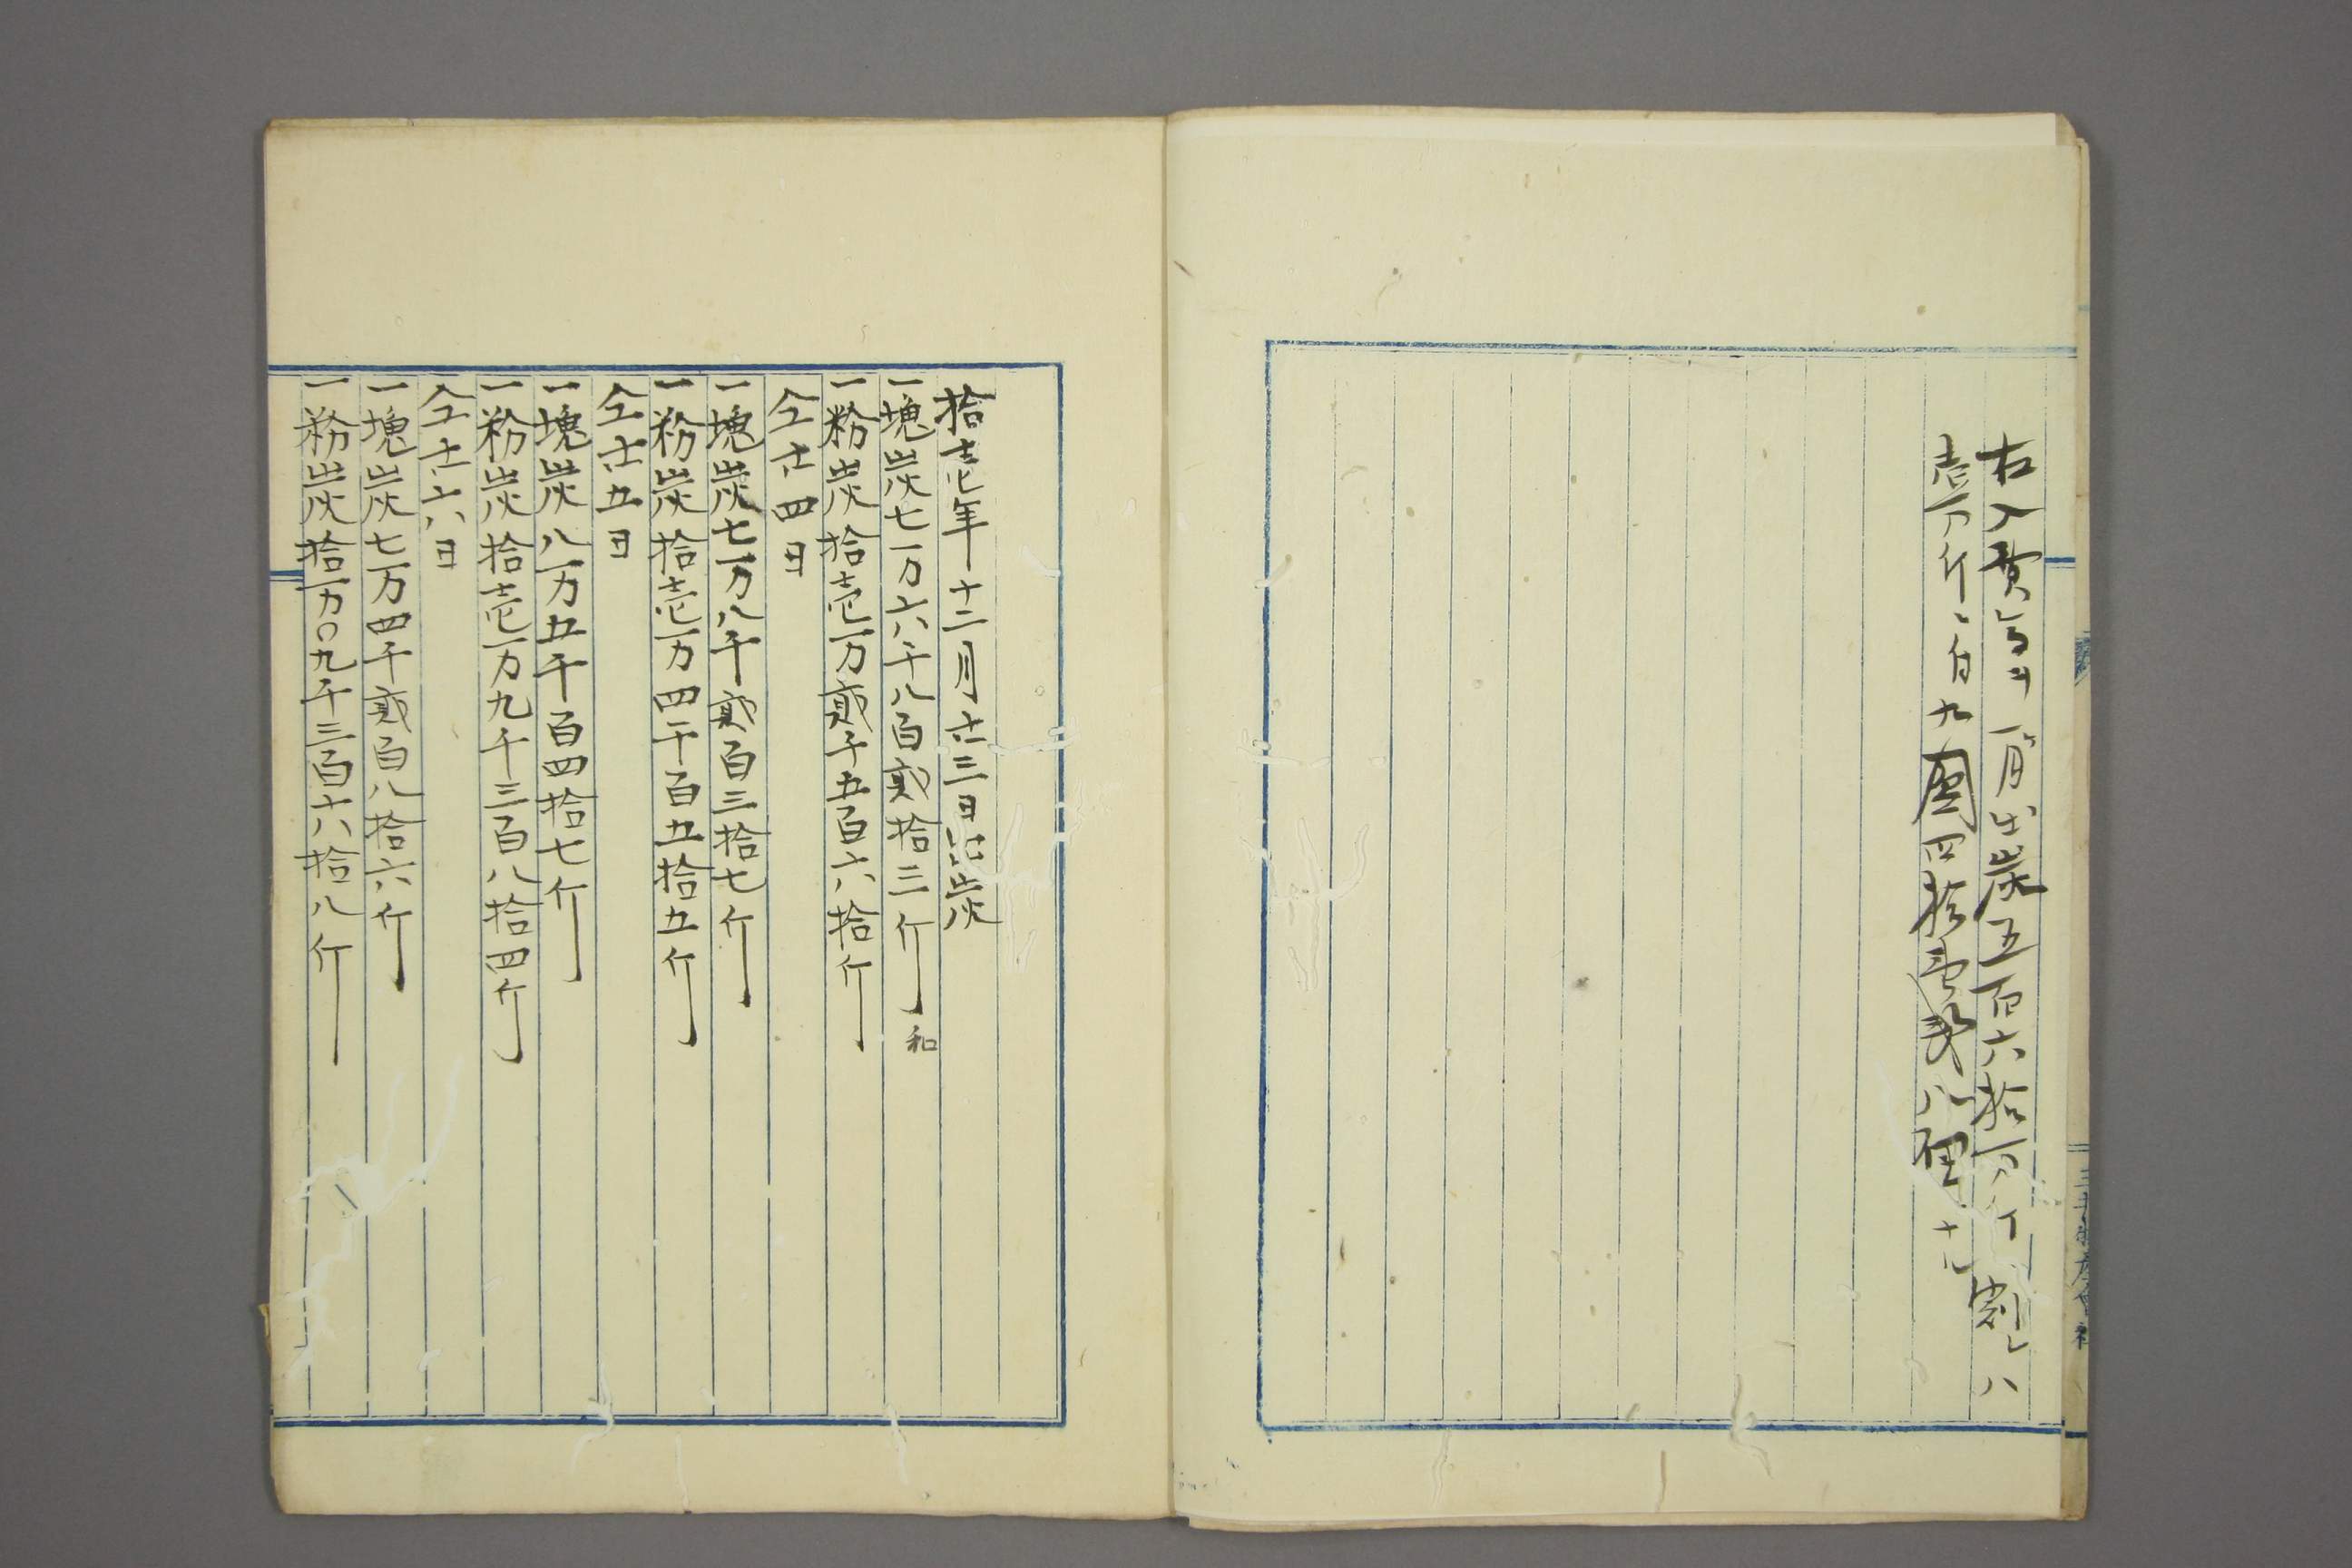 右入費高ヲ一月出炭五百六拾万斤ニ割レハ
壱万斤ニ付九圓四拾壱銭八厘十
三井物産會社
拾壱年十二月廿三日出炭
一塊炭七万六千八百貳拾三斤 和
一粉炭拾壱万貳千五百六拾斤
仝廿四日
一塊炭七万八千貳百三拾七斤
一粉炭拾壱万四千百五拾五斤
仝廿五日
一塊炭八万五千百四拾七斤
一粉炭拾壱万九千三百八拾四斤
仝廿六日
一塊炭七万四千貳百八拾六斤
一粉炭拾万〇九千三百六拾八斤